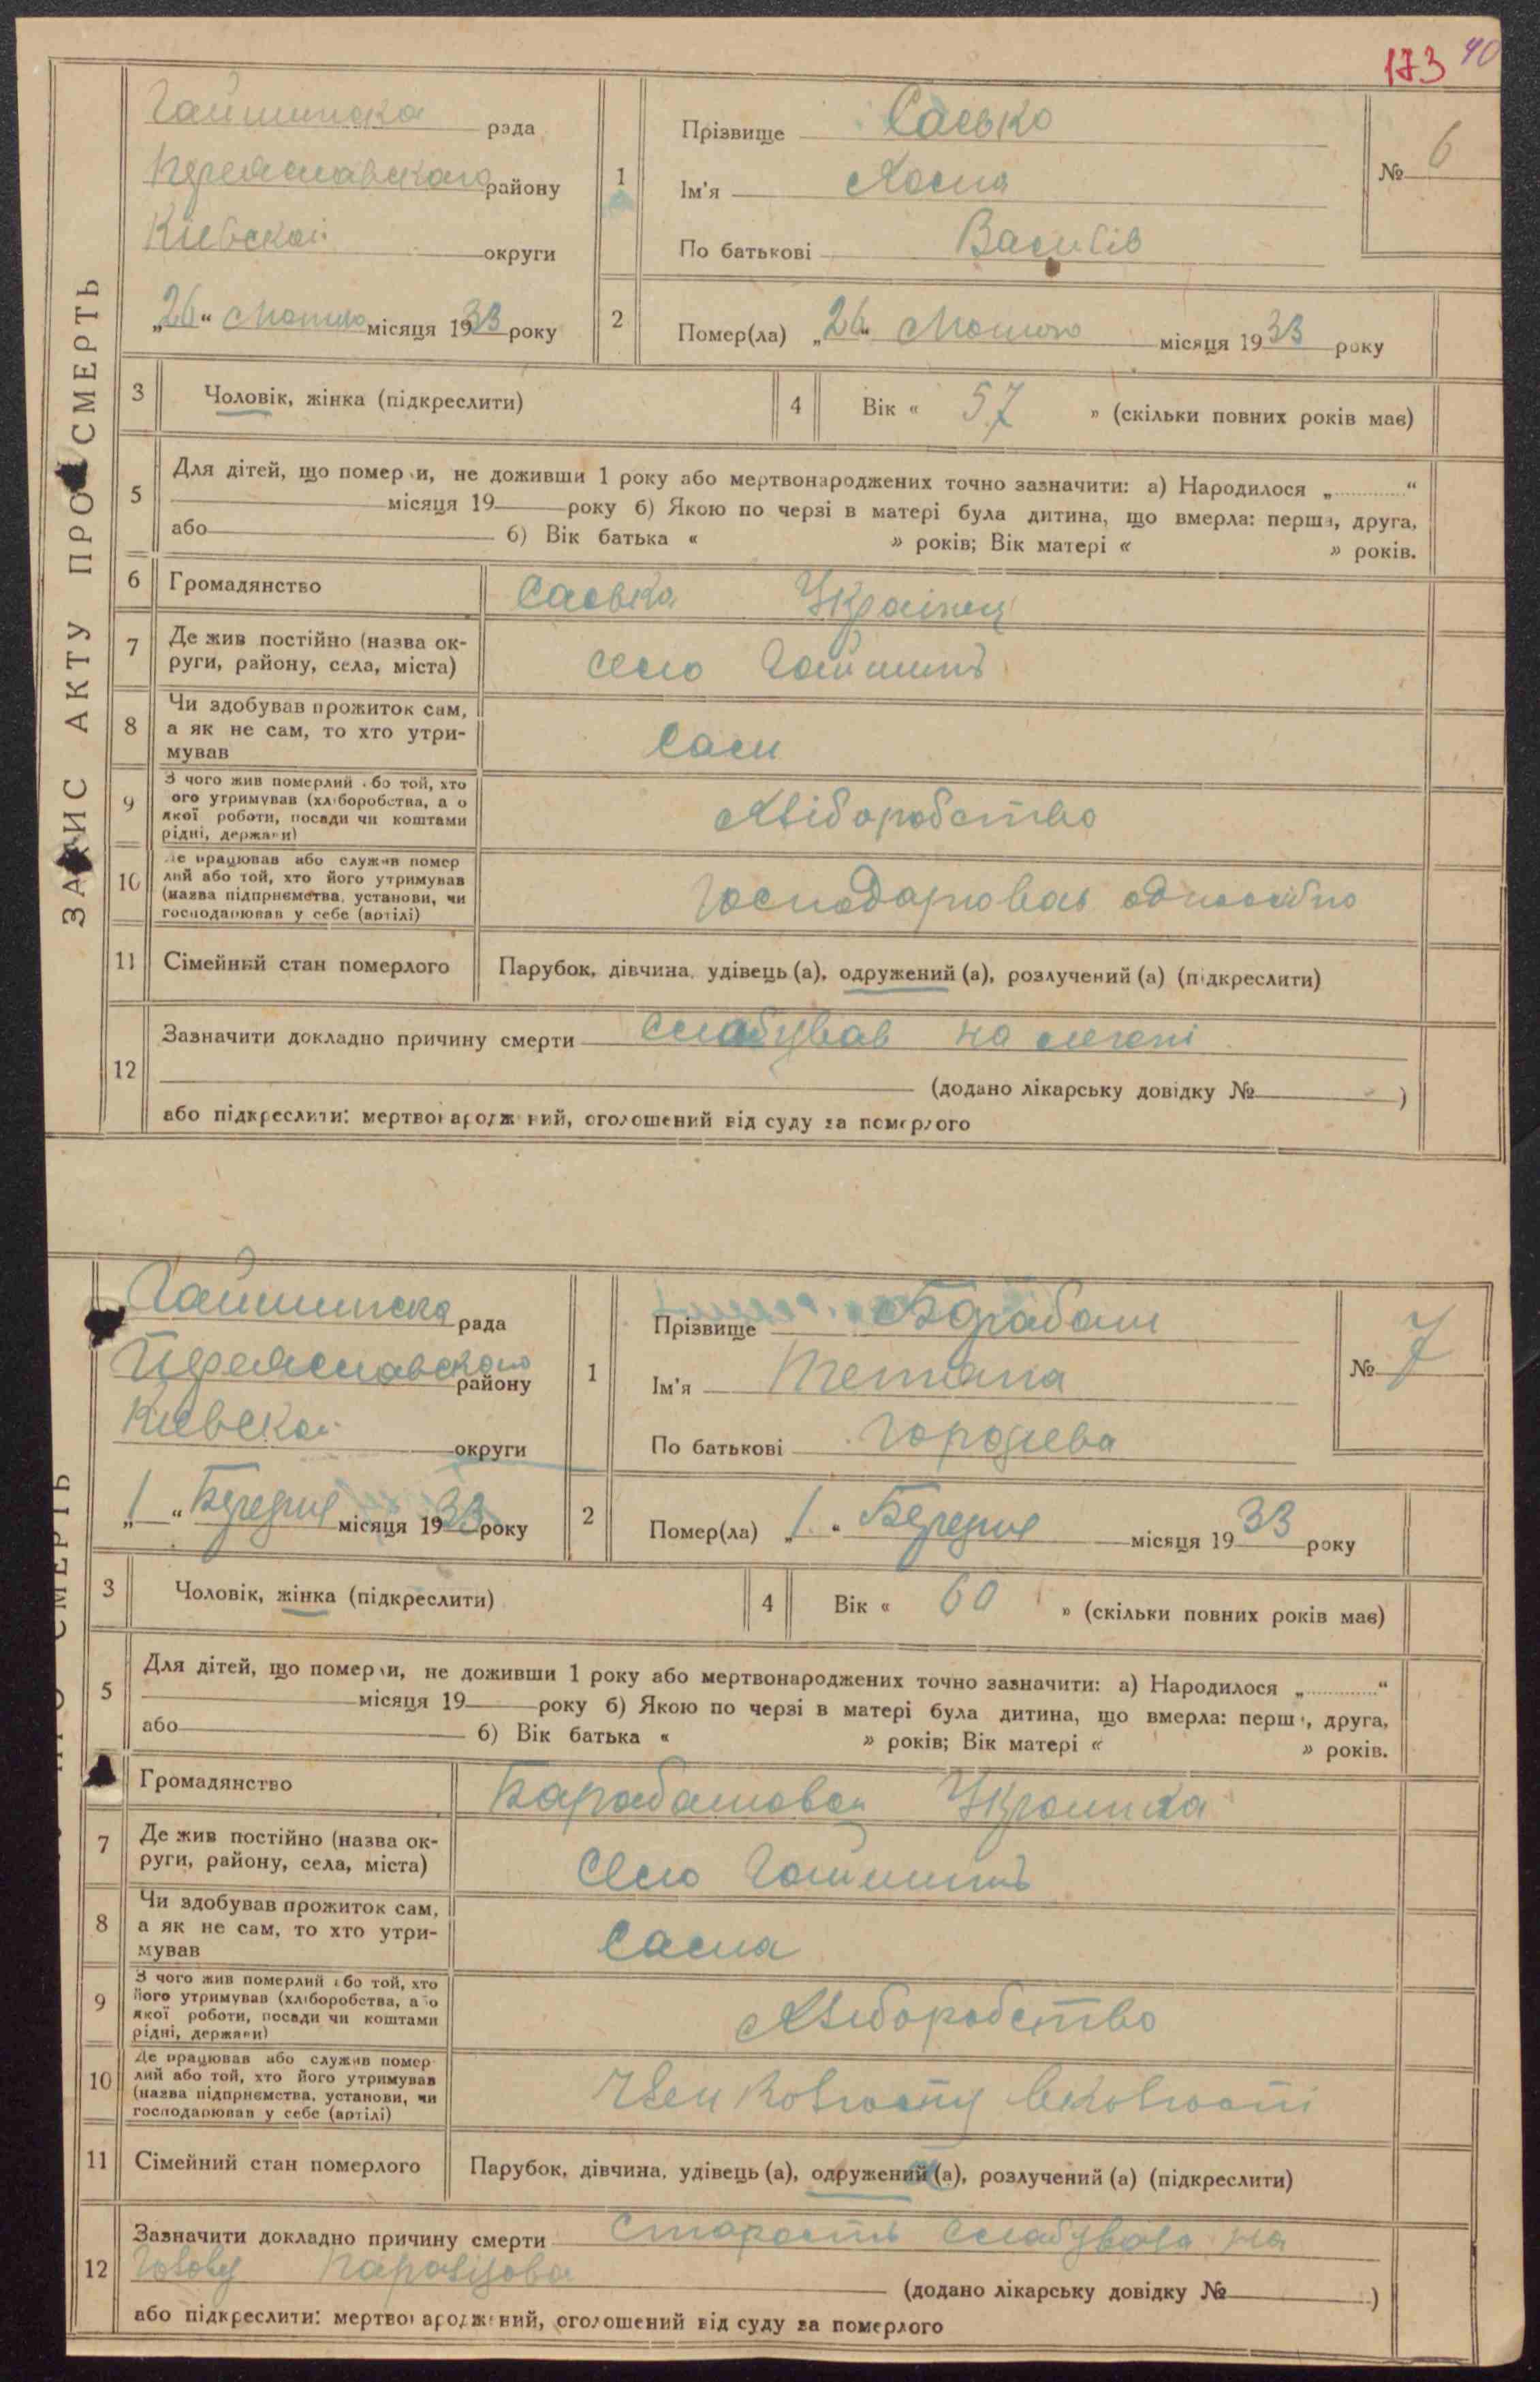 173 40
ЗАПИС АКТУ ПРО СМЕРТЬ
Гайшинска рада
Переяславского району
Киевской округи
„26“ Лютого місяця 1933 року
1
Прізвище Сасько
Ім'я
По батькові Василів
№ 6
2
Помер(ла) „26“ Лютого місяця 1933 року
3 Чоловік, жінка (підкреслити)
4 Вік « 57 » (скільки повних років має)
5 Для дітей, що померли, не доживши 1 року або мертвонароджених точно зазначити: а) Народилося „ “
місяця 19 року б) Якою по черзі в матері була дитина, що вмерла: перша, друга,
або б) Вік батька « » років; Вік матері « » років.
6 Громадянство Сасько Украінец
7 Де жив постійно (назва ок-
руги, району, села, міста) село Гайшинъ
8 Чи здобував прожиток сам,
а як не сам, то хто утри-
мував
Сам
9 З чого жив померлий або той, хто
його утримував (хліборобства, або
якої роботи, посади чи коштами
рідні, держави)
Хліборобство
10 Де працював або служив помер
лий або той, хто його утримував
(назва підприємства, установи, чи
господарював у себе (артілі)
Господарював одноосібно
11 Сімейний стан померлого Парубок, дівчина, удівець (а), одружений (а), розлучений (а) (підкреслити)
12 Зазначити докладно причину смерти слабував на легені
(додано лікарську довідку № )
або підкреслити: мертвонароджений, оголошений від суду за померлого
СМЕРТЬ
Гайшинска рада
Переяславского району
Киевской округи
„1“ Березня місяця 1933 року
1
Прізвище Барабаш
Ім'я Тетяна
По батькові
№ 7
2
Помер(ла) „1“ Березня місяця 1933 року
3 Чоловік, жінка (підкреслити)
4 Вік « 60 » (скільки повних років має)
5 Для дітей, що померли, не доживши 1 року або мертвонароджених точно зазначити: а) Народилося „ “
місяця 19 року б) Якою по черзі в матері була дитина, що вмерла: перша, друга,
або б) Вік батька « » років; Вік матері « » років.
Громадянство Барабашовой Украинка
7 Де жив постійно (назва ок-
руги, району, села, міста) Село Гайшинъ
8 Чи здобував прожиток сам,
а як не сам, то хто утри-
мував
Сама
9 З чого жив померлий або той, хто
його утримував (хліборобства, або
якої роботи, посади чи коштами
рідні, держави)
Хлиборобство
10 Де працював або служив помер
лий або той, хто його утримував
(назва підприємства, установи, чи
господарював у себе (артілі)
Член колгоспу вколгоспі
11 Сімейний стан померлого Парубок, дівчина, удівець (а), одружений (а), розлучений (а) (підкреслити)
12 Зазначити докладно причину смерти Старость слабувала на
голову
(додано лікарську довідку № )
або підкреслити: мертвонароджений, оголошений від суду за померлого